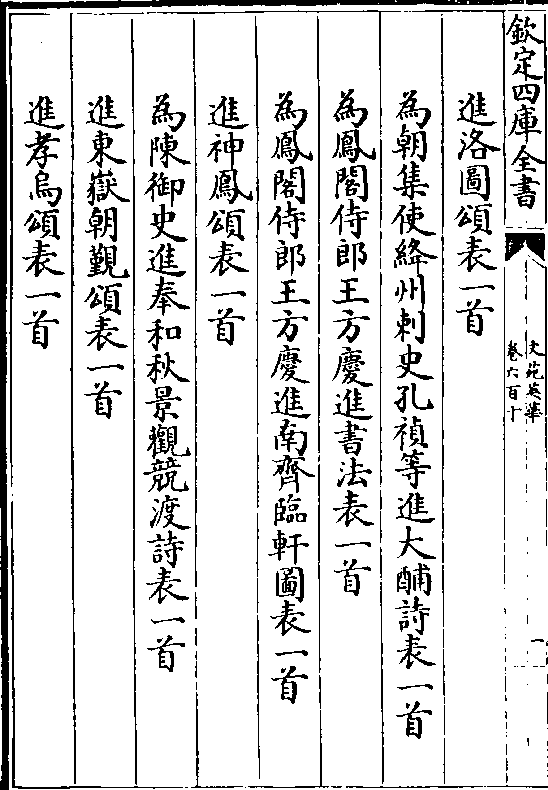 欽定四庫全書
文苑英華
卷六百十
一
進洛圖頌表一首
為朝集使絳州刺史孔禎等進大酺詩表一首
為鳳閣侍郎王方慶進書法表一首
為鳳閣侍郎王方慶進南齊臨軒圖表一首
進神鳳頌表一首
為陳御史進奉和秋景觀競渡詩表一首
進東嶽朝覲頌表一首
進孝烏頌表一首